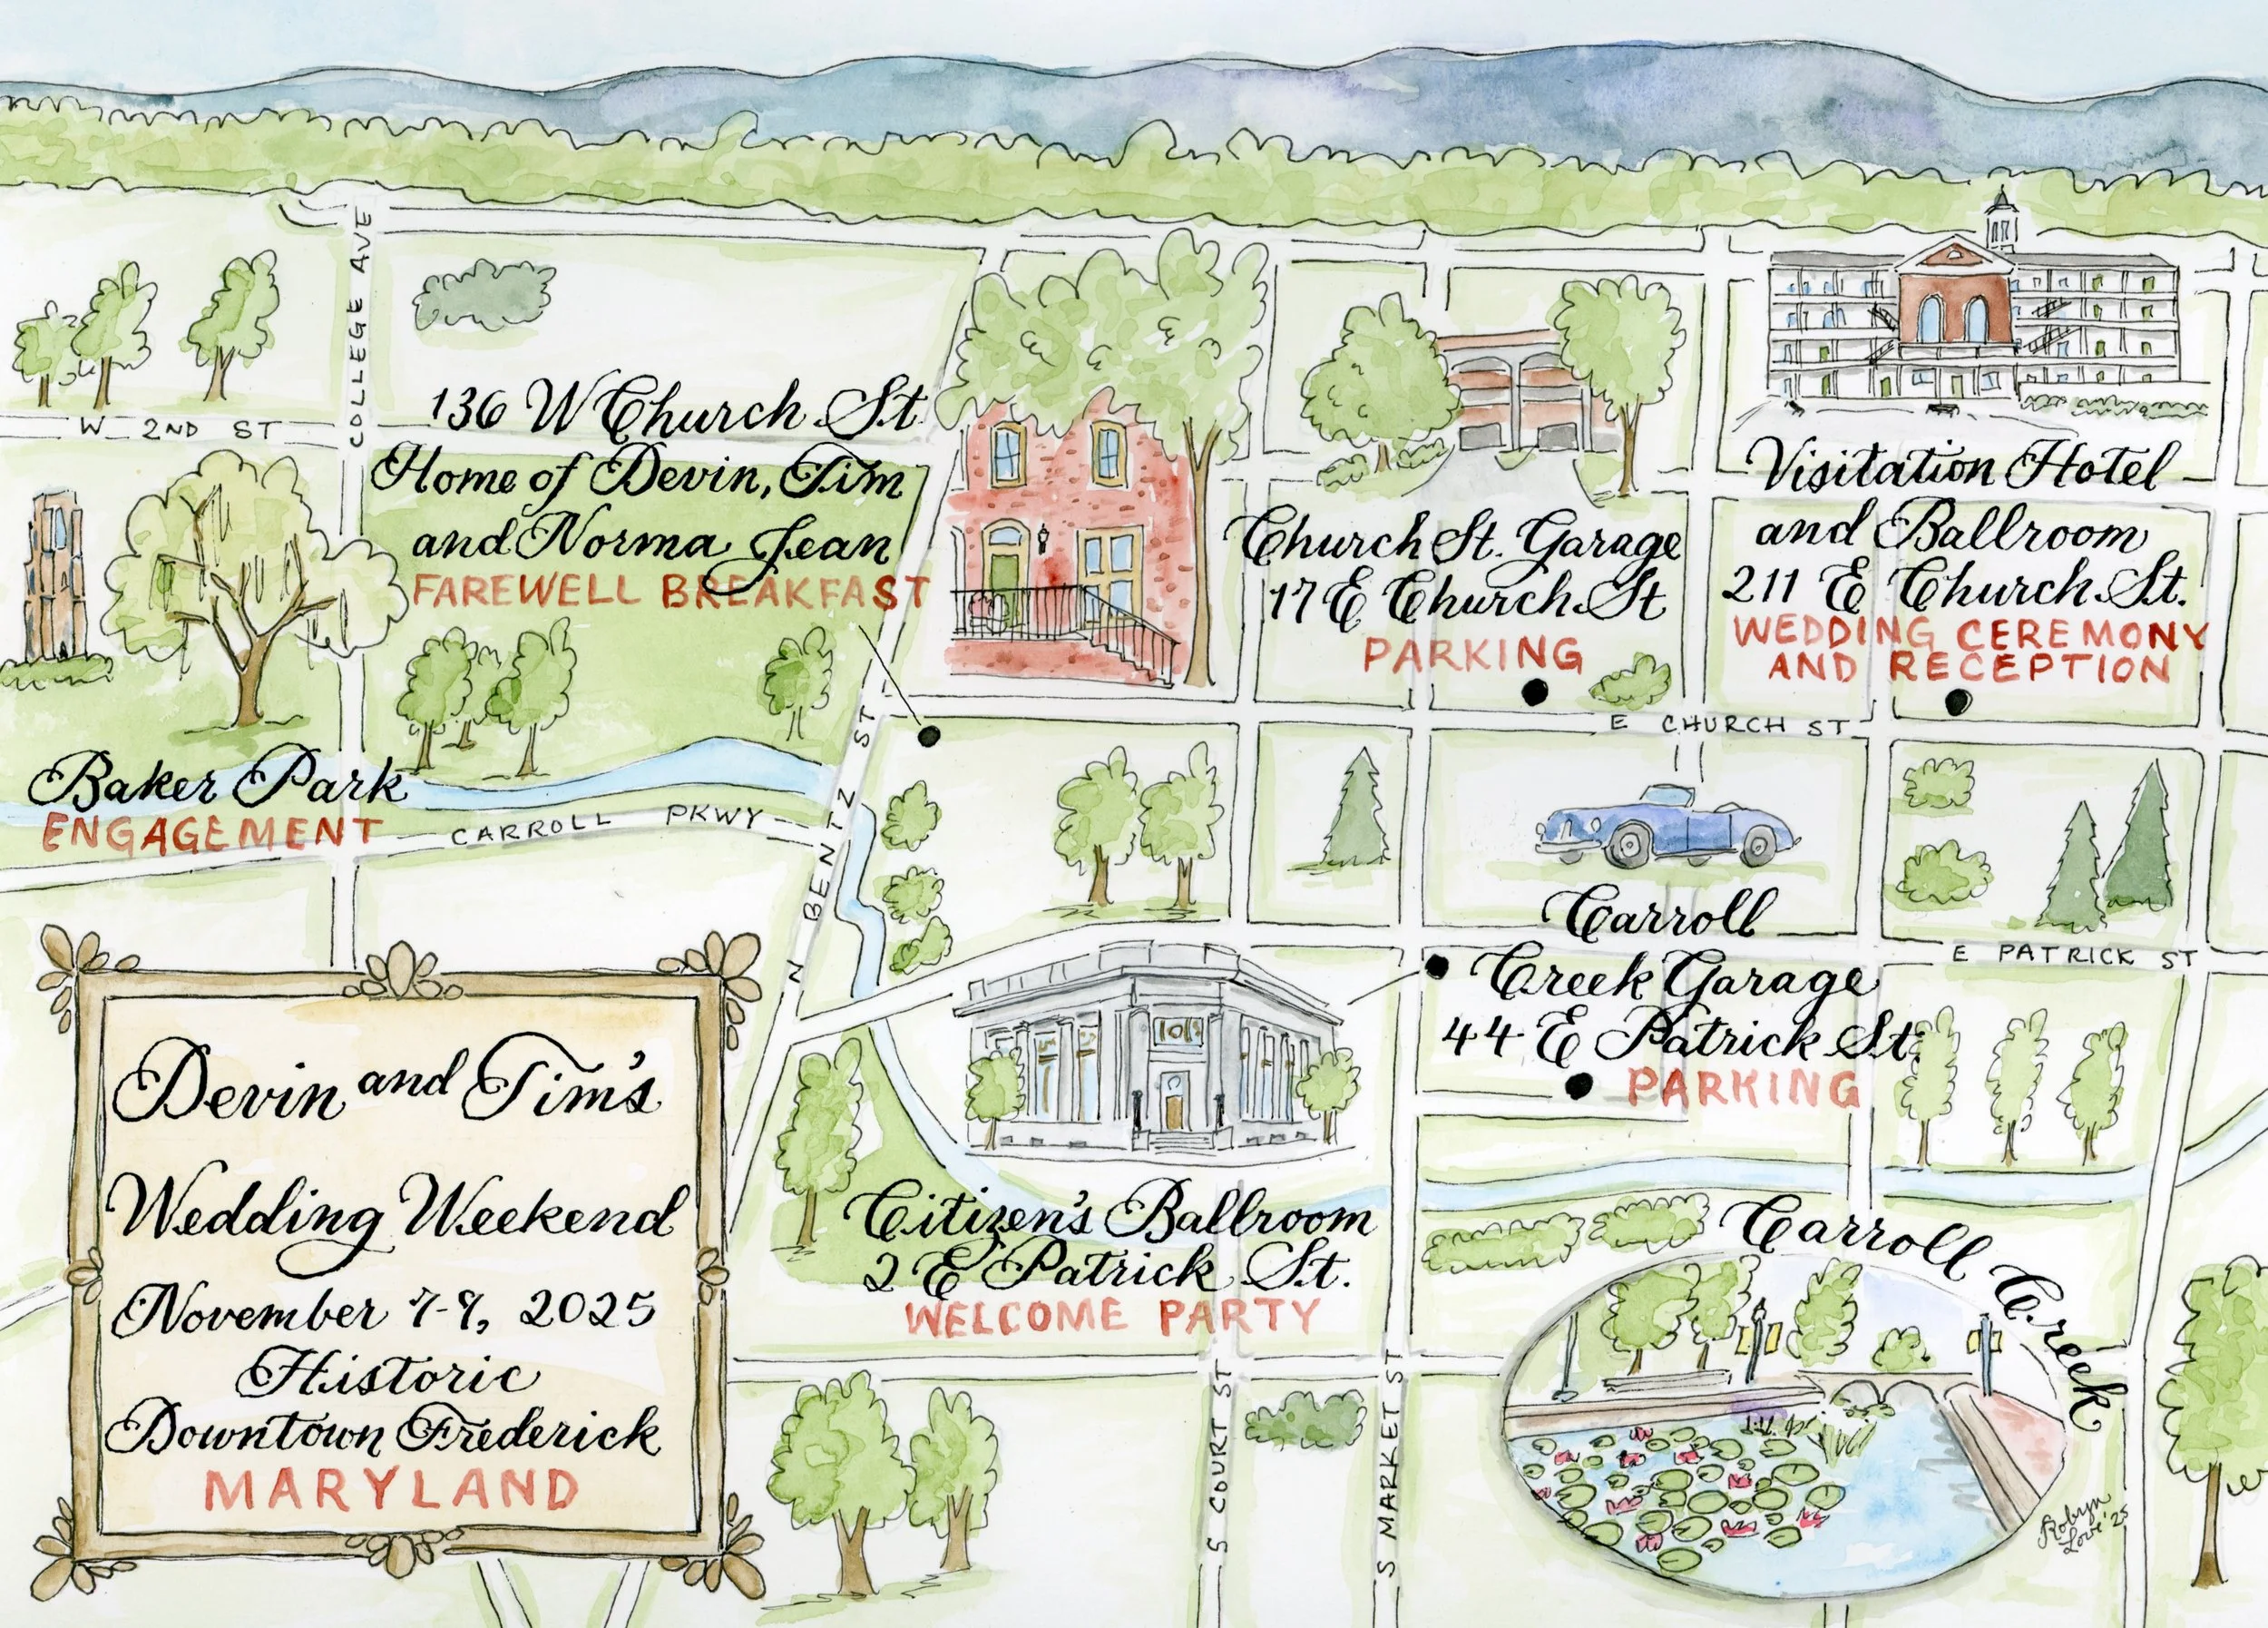 COLLEGE AVE
W 2ND ST
136 W Church St
Home of Devin, Tim
and Norma Jean
FAREWELL BREAKFAST
Church St. Garage
17 E Church St
PARKING
Visitation Hotel
and Ballroom
211 E Church St.
WEDDING CEREMONY
AND RECEPTION
E CHURCH ST
Baker Park
ENGAGEMENT
CARROLL PKWY
N BENTZ ST
Carroll
Creek Garage
44 E Patrick St.
PARKING
E PATRICK ST
Citizen's Ballroom
2 E Patrick St.
WELCOME PARTY
Carroll Creek
S COURT ST
S MARKET ST
Devin and Tim's
Wedding Weekend
November 7-9, 2025
Historic
Downtown Frederick
MARYLAND
Robyn
Love '25